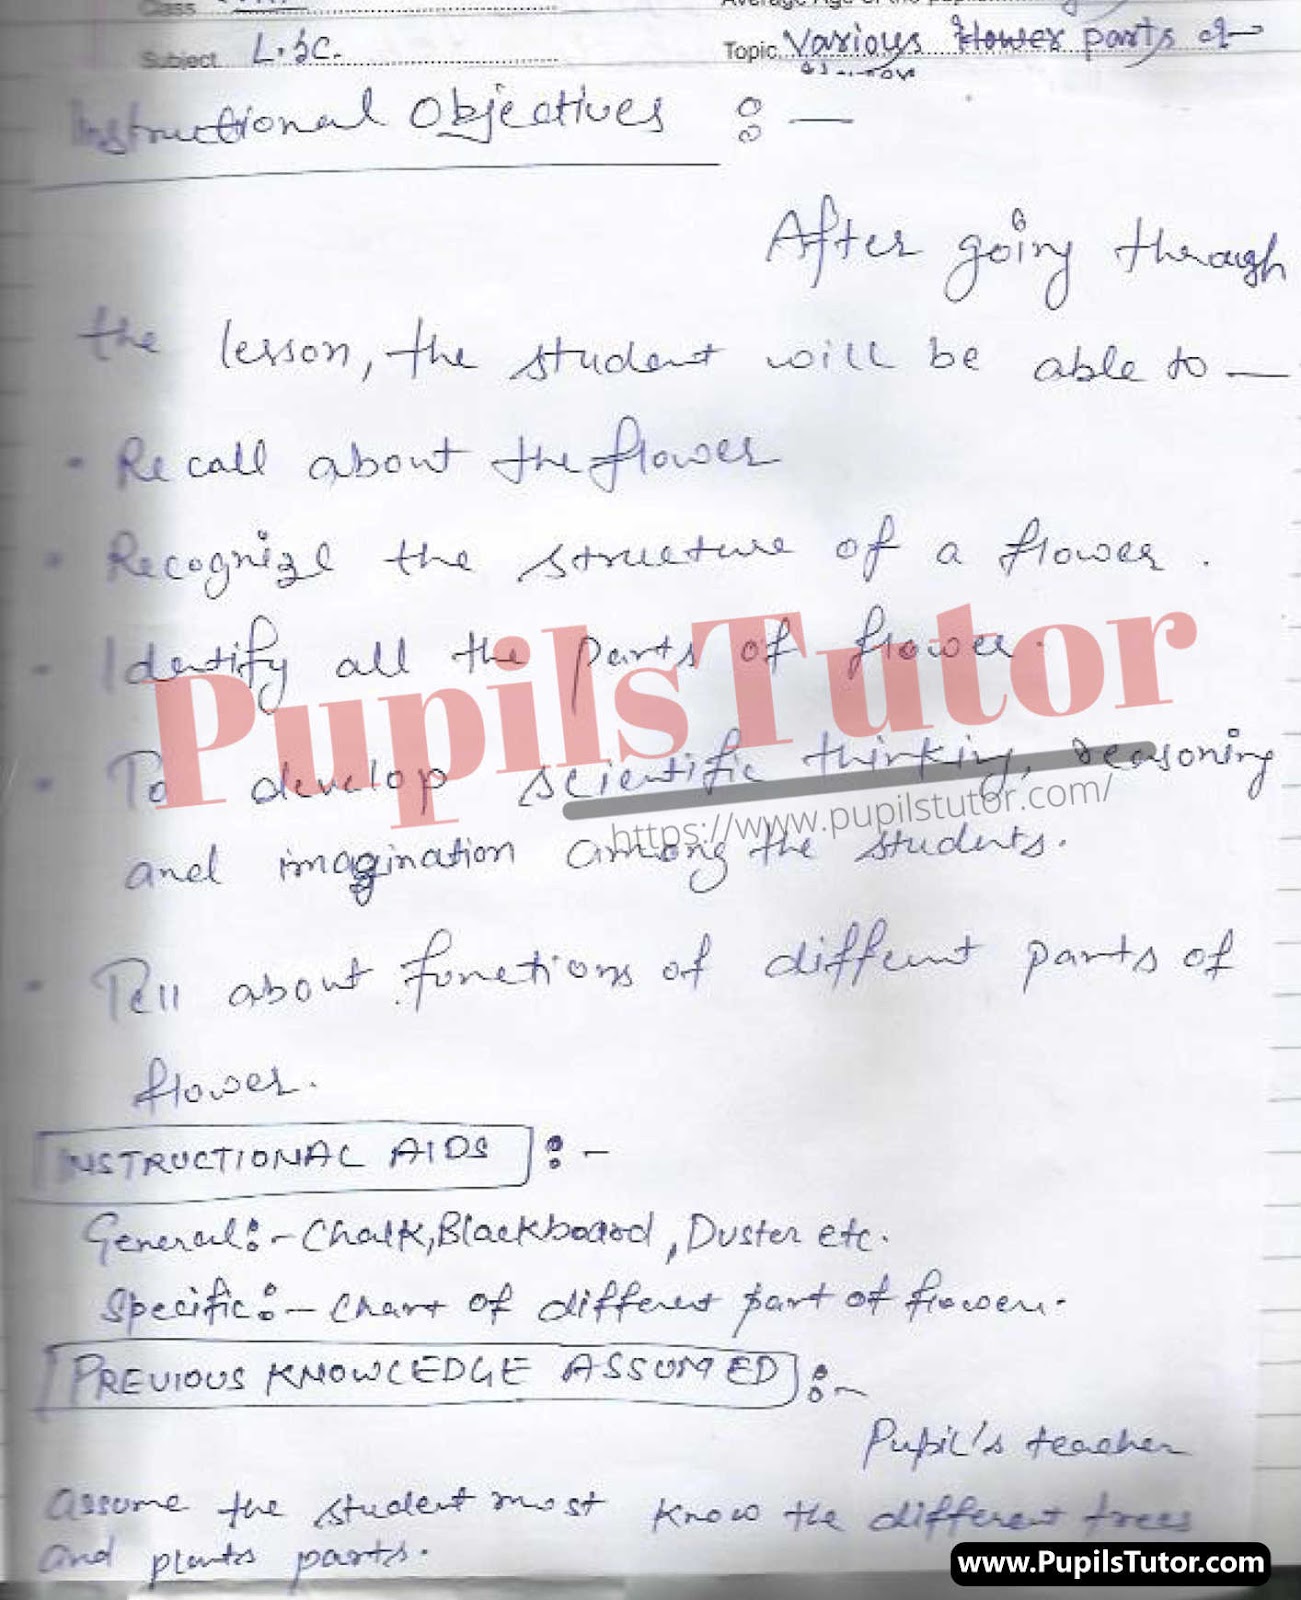 Class
Subject L.Sc.
Topic Various flower parts of
Instructional Objectives :-
After going through
the lesson, the student will be able to —
• Recall about the flower
• Recognize the structure of a flower.
• Identify all the parts of flower.
• To develop scientific thinking, reasoning
and imagination among the students.
• Tell about functions of different parts of
flower.
INSTRUCTIONAL AIDS :-
General:- Chalk, Blackboard, Duster etc.
Specific:- Chart of different part of flower.
PREVIOUS KNOWLEDGE ASSUMED :-
Pupil's teacher
assume the student most know the different trees
and plants parts.
PupilsTutor
https://www.pupilstutor.com/
www.PupilsTutor.com